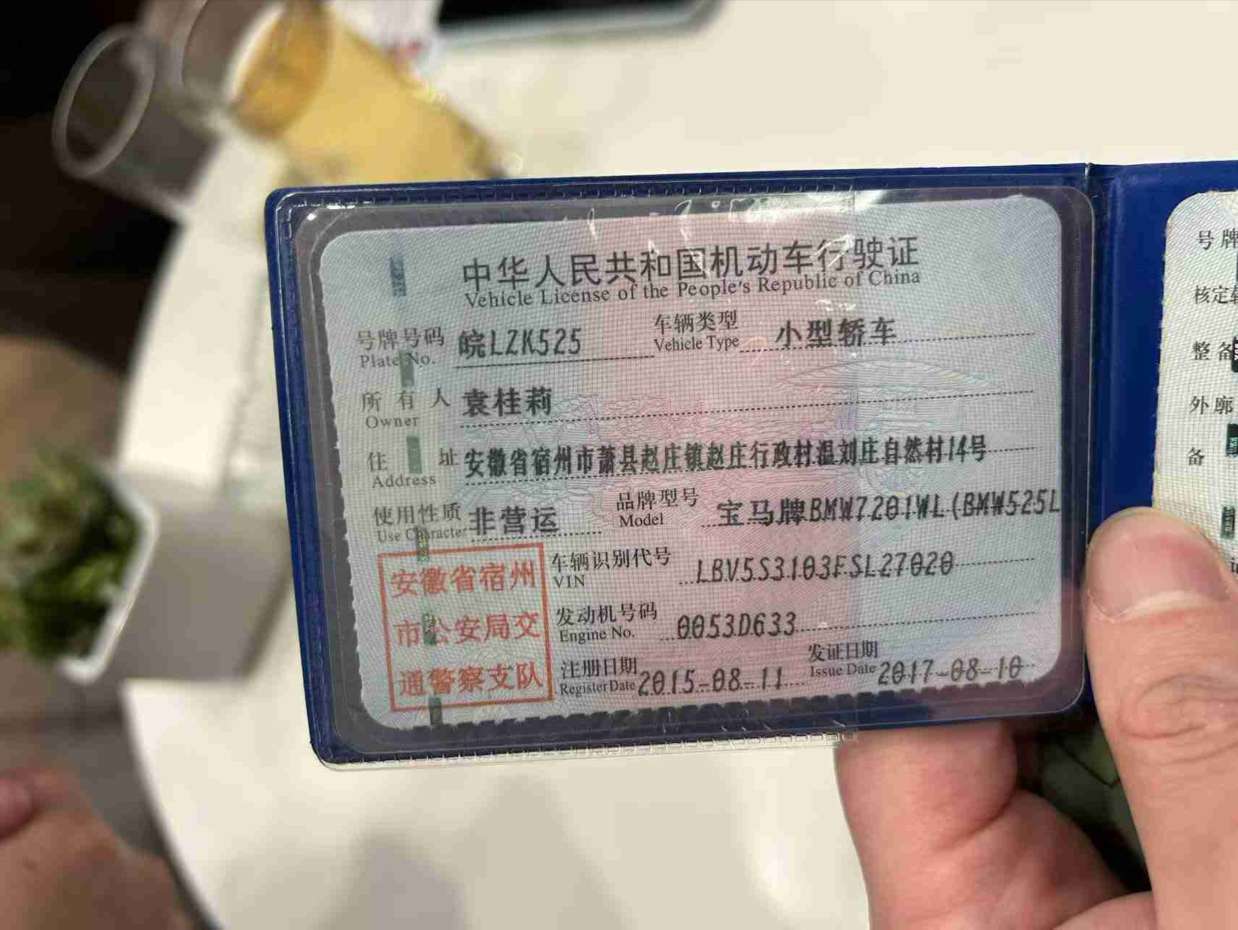 中华人民共和国机动车行驶证
Vehicle License of the People's Republic of China
号牌号码 皖LZK525 车辆类型 小型轿车
Plate No. Vehicle Type
所有人 袁桂莉
Owner
住址 安徽省宿州市萧县赵庄镇赵庄行政村温刘庄自然村14号
Address
使用性质 非营运 品牌型号 宝马牌BMW7201WL(BMW525L
Use Character Model
安徽省宿州
市公安局交
通警察支队
车辆识别代号 LBV5S3103FSL27020
VIN
发动机号码 0053D633
Engine No.
注册日期 2015-08-11 发证日期 2017-08-10
Register Date Issue Date
号牌
核定
整备
外廓
备